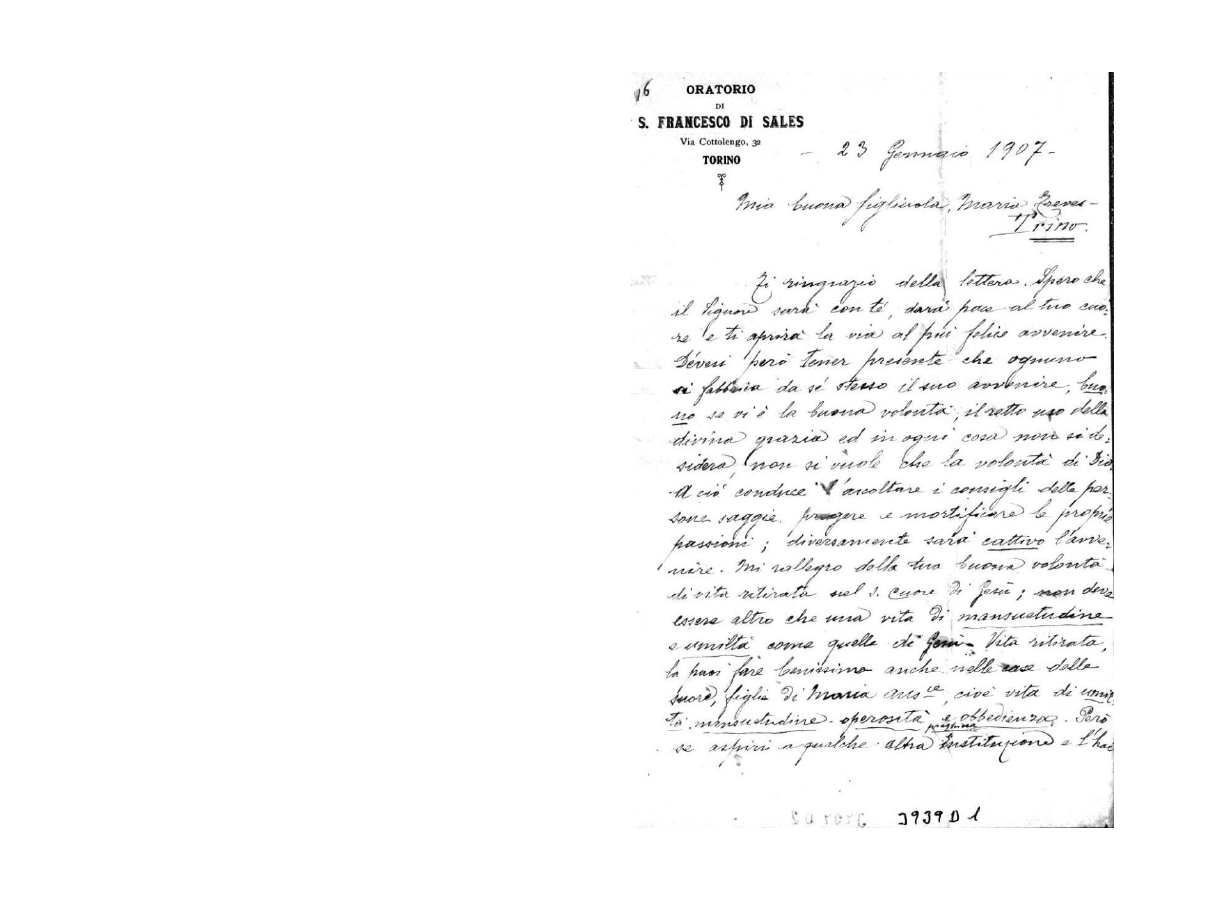 16
ORATORIO
DI
S. FRANCESCO DI SALES
Via Cottolengo, 32
TORINO
- 23 Gennaio 1907 -
Mia buona figliuola, Maria Treves -
Trino.
Ti ringrazio della lettera. Spero che
il Signore sarà con té, darà pace al tuo cuo:
re e ti aprirà la via al più felice avvenire.
Dévesi però tener presente che ognuno
si fabbrica da sé stesso il suo avvenire, buo:
no se vi è la buona volontà, il retto uso della
divina grazia ed in ogni cosa non si de:
sidera, non si vuole che la volontà di Dio.
A ciò conduce l'ascoltare i consigli delle per
sone saggie. pregare e mortificare le proprie
passioni; diversamente sarà cattivo l'avve:
nire. Mi rallegro della tua buona volontà
di vita ritirata nel s. cuore di Gesù; non deve
essere altro che una vita di mansuetudine
e umiltà come quella di Gesù - Vita ritirata,
la puoi fare benissimo anche nelle case delle
suore, figlie di Maria Aus.ce, cioè vita di umil
tà, mansuetudine - operosità preghiera e obbedienza. Però
se aspiri a qualche altra Instituzione e l'hai
3939 D 1